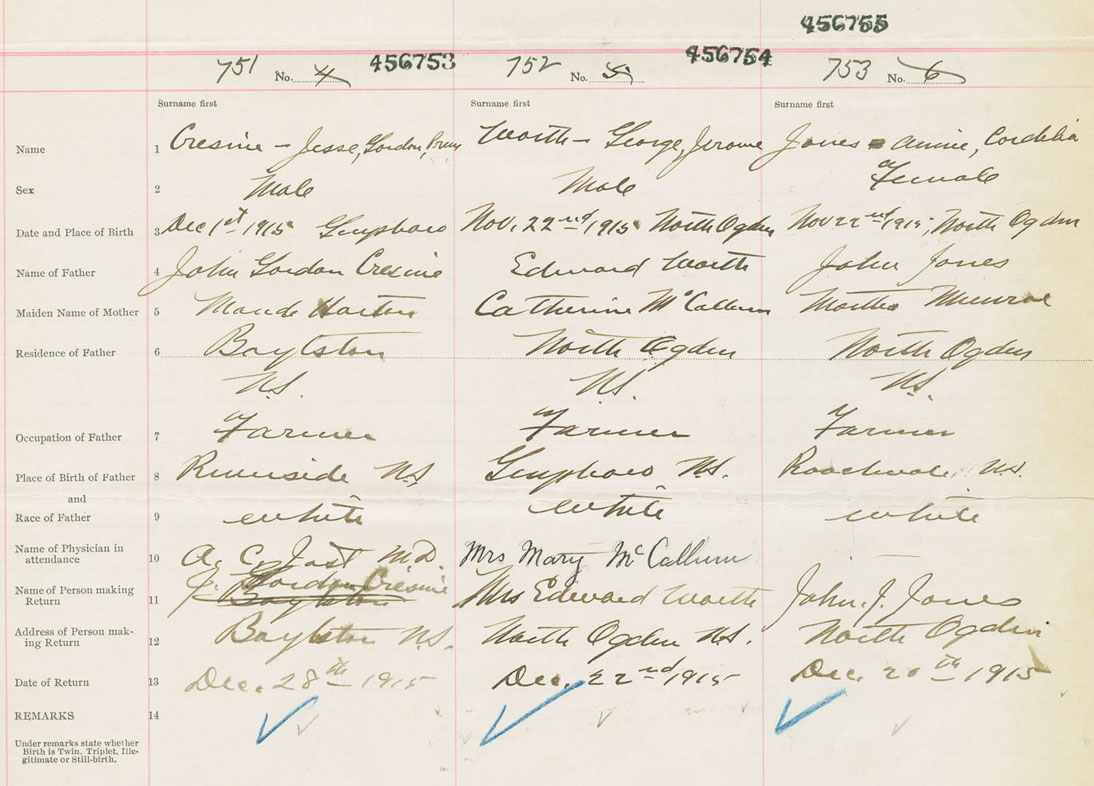 456755
456753 456754
751 No. 4 752 No. 5 753 No. 6
Surname first Surname first Surname first
Name 1 Cresine - Jesse, Gordon, Worth - George, Jerome Jones - Annie, Cordelia
Sex 2 Male Male Female
Date and Place of Birth 3 Dec 1st 1915 Guysboro Nov. 22nd 1915 North Ogden Nov 22nd 1915, North Ogden
Name of Father 4 John Gordon Cresine Edward Worth John Jones
Maiden Name of Mother 5 Maude Horton Catherine McCallum Martha Munroe
Residence of Father 6 Boylston North Ogden North Ogden
N.S. N.S. N.S.
Occupation of Father 7 Farmer Farmer Farmer
Place of Birth of Father 8 Riverside N.S. Guysboro N.S. N.S.
and
Race of Father 9 white white white
Name of Physician in
attendance 10 A. C. Jost M.D. Mrs Mary McCallum —
Name of Person making
Return 11 J. Gordon Cresine Boylston Mrs Edward Worth John. J. Jones
Address of Person mak-
ing Return 12 Boylston N.S. North Ogden N.S. North Ogden
Date of Return 13 Dec. 28th 1915 Dec. 22nd 1915 Dec. 20th 1915
REMARKS 14
Under remarks state whether
Birth is Twin, Triplet, Ille-
gitimate or Still-birth.